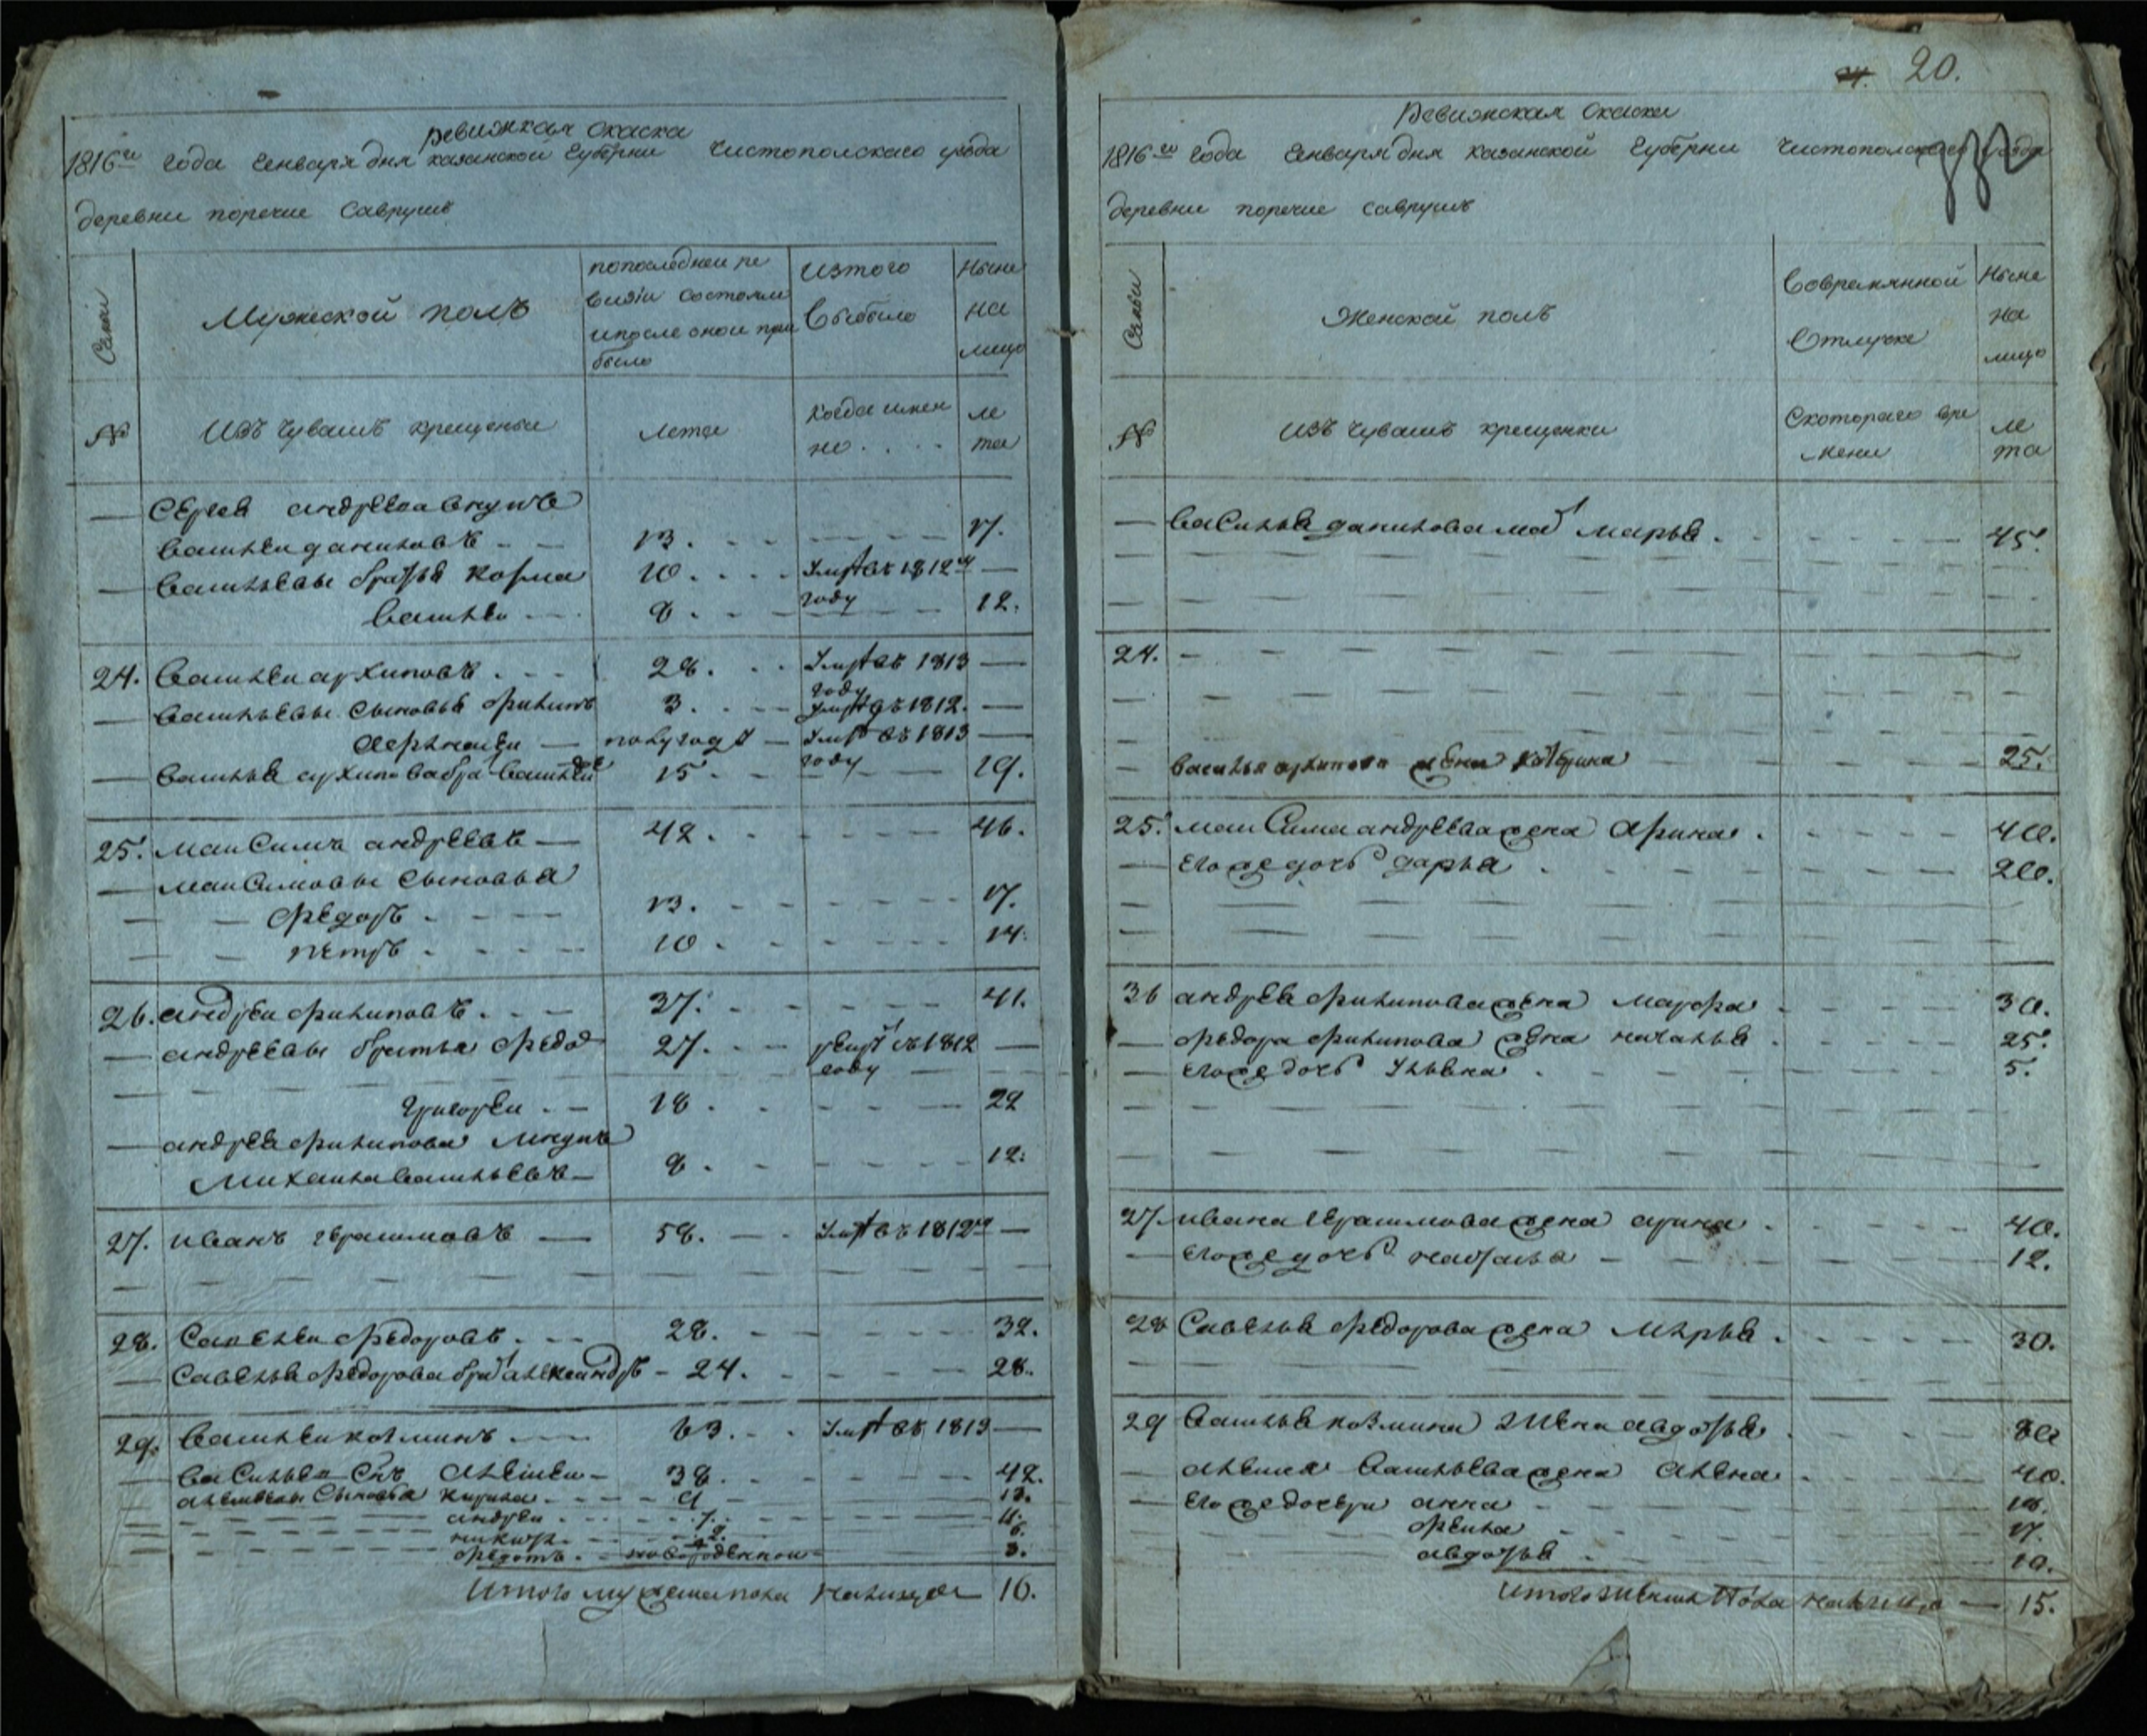 Ревижская скаска
1816го года генваря дня казанской губерни чистополскаго уезда
деревни поречие Савруши
Семьи
Мужеской полъ
попоследнеи ре
визiи состояли
ипосле оной при
было
изтого
выбыло
Ныне
на
лицо
№
Изъ чувашъ крещеныи
лета
когда имен
но
ле
та
Сергея андреева внукъ
василеи даниловъ 13. 17.
васильевы братья козма 10. Умре въ 1812м
году
василеи 8. 12.
24. василеи архиповъ 28. Умре въ 1813
году
васильевы сыновья филипъ 3. Умре въ 1812.
полугода Умре въ 1813
году
василья архипова братъ василеи 15 19.
25. максимъ андреевъ 42. 46.
максимовы сыновья
федоръ 13. 17.
петръ 10. 14.
26. андреи филиповъ 37. 41.
андреевы братья федоръ 27. въ 1812
году
григореи 18. 22
андрея филипова
михаила васильевъ 8. 12.
27. иванъ герасимовъ 58. Умре въ 1812м
28. Савелеи федоровъ 28. 32.
Савелья федорова братъ александръ 24. 28.
29. василеи козминъ 63. Умре въ 1813
василья сынъ алексеи 38. 42.
алексеевы сыновья кирила 9 13.
андреи 7. 11.
2. 6.
федотъ новорожденнои 3.
Итого мужеска пола налицо 16.
20.
Ревижская скаска
1816го года генваря дня казанской губерни чистополскаго уезда
деревни поречие савруши
Семьи
Женской полъ
Вовремянной
отлучке
Ныне
на
лицо
№
изъ чувашъ крещенки
Скотораго вре
мени
ле
та
василья данилова мать марья 45.
24.
василья архипова жена катерина 25.
25. максима андреева жена арина 40.
егоже дочь дарья 20.
36 андрея филипова жена марфа 30.
федора филипова жена наталья 25.
егоже дочь ульяна 5.
27. ивана герасимова жена арина 40.
егоже дочь наталья 12.
28 Савелья федорова жена марья 30.
29 василья козмина жена авдотья 60
алексея васильева жена алена 40.
егоже дочери анна 18.
фекла 17.
авдотья 10.
итого женска пола налицо 15.